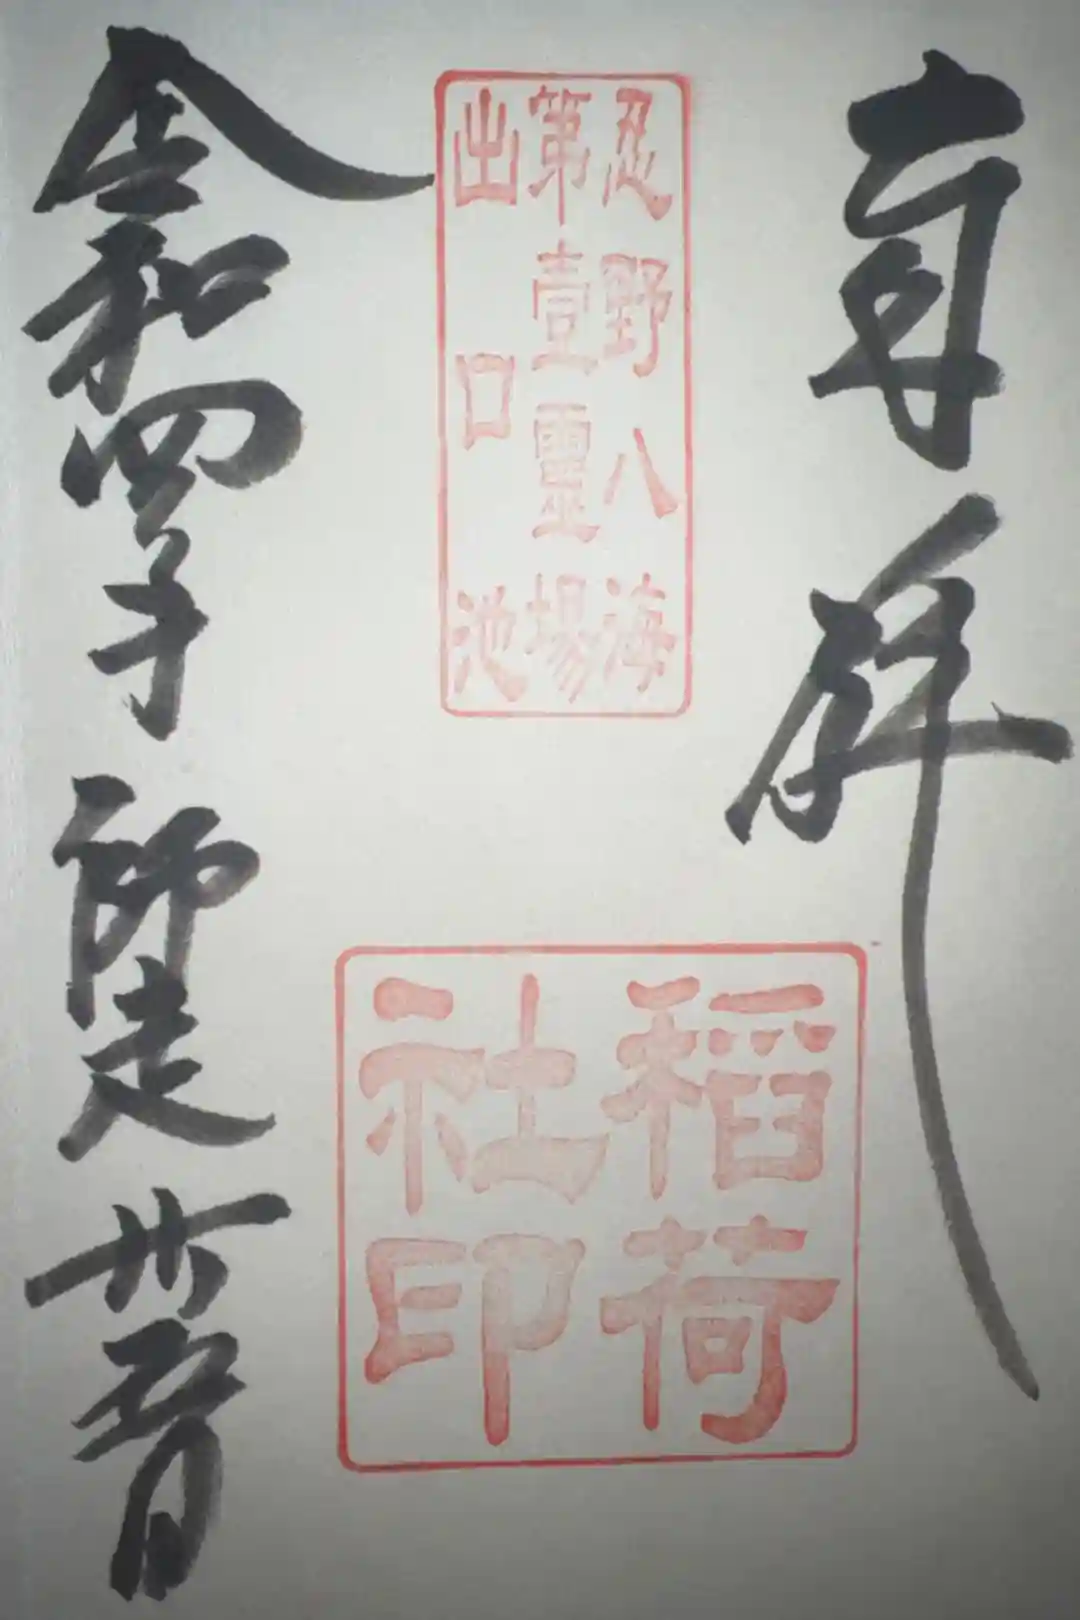 奉拝
忍野八海
第壹霊場
出口池
稲荷
社印
令和四年 師走 廿五日